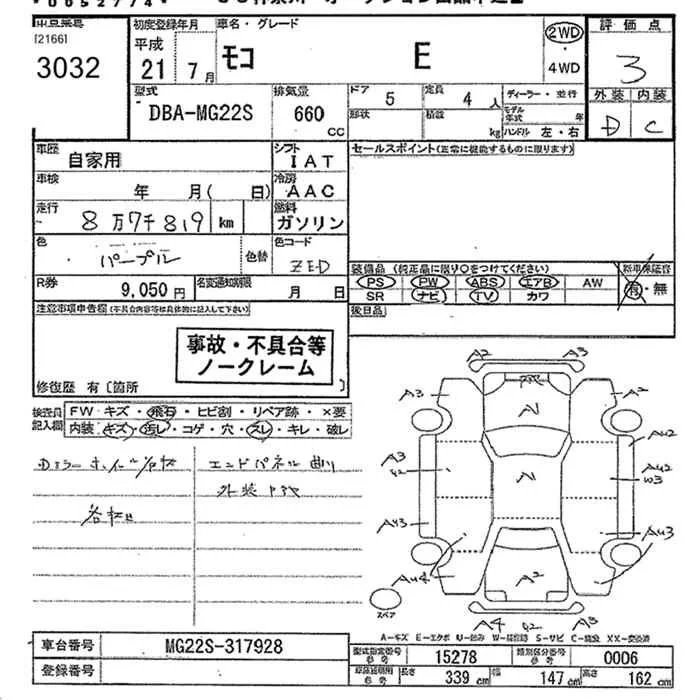 [2166]
3032
初度登録年月
平成
21年 7月
車名・グレード
モコ E
2WD
・
4WD
評価点
3
外装 内装
D C
型式
DBA-MG22S
排気量
660
CC
ドア 5
定員 4人
形状
積載 kg
ディーラー・並行
モデル年式 年
ハンドル 左・右
車歴
自家用
シフト
IAT
セールスポイント(正常に機能するものに限ります)
車検
年 月( 日)
冷房
AAC
走行
8万7千819 km
燃料
ガソリン
色
パープル
色替
色コード
ZED
装備品 (純正品に限り○をつけてください)
新車保証書
PS PW ABS エアB AW
有・無
SR ナビ TV カワ
R券
9,050円
名変通知期限
月 日
後日品
注意事項申告欄(不具合内容等は具体的に記入して下さい)
事故・不具合等
ノークレーム
修復歴 有〔箇所 〕
検査員
記入欄
FW キズ・飛石・ヒビ割・リペア跡・×要
内装 キズ・汚レ・コゲ・穴・スレ・キレ・破レ
エンドパネル曲り
A2 A3
A3 A2
A1
A3 AU2
A1 AU2
W3
AU3 AU3
AU4
A2
スペア
A4 A3
A-キズ E-エクボ U-凹み W-補修跡 S-サビ C-腐食 XX-交換済
車台番号
MG22S-317928
登録番号
型式指定番号
参考
15278
類別区分番号
参考
0006
参考
長さ 339 cm
幅 147 cm
高さ 162 cm